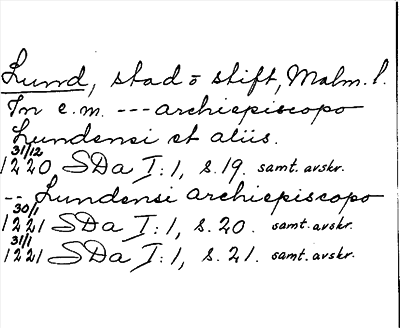 Lund, stad o stift, Malm. l.
In e.m. --- archiepiscopo
Lundensi et aliis.
31/12
1220 SDa I:1, s.19. samt. avskr.
-- Lundensi archiepiscopo
30/1
1221 SDa I:1, s.20. samt. avskr.
31/1
1221 SDa I:1, s.21. samt. avskr.